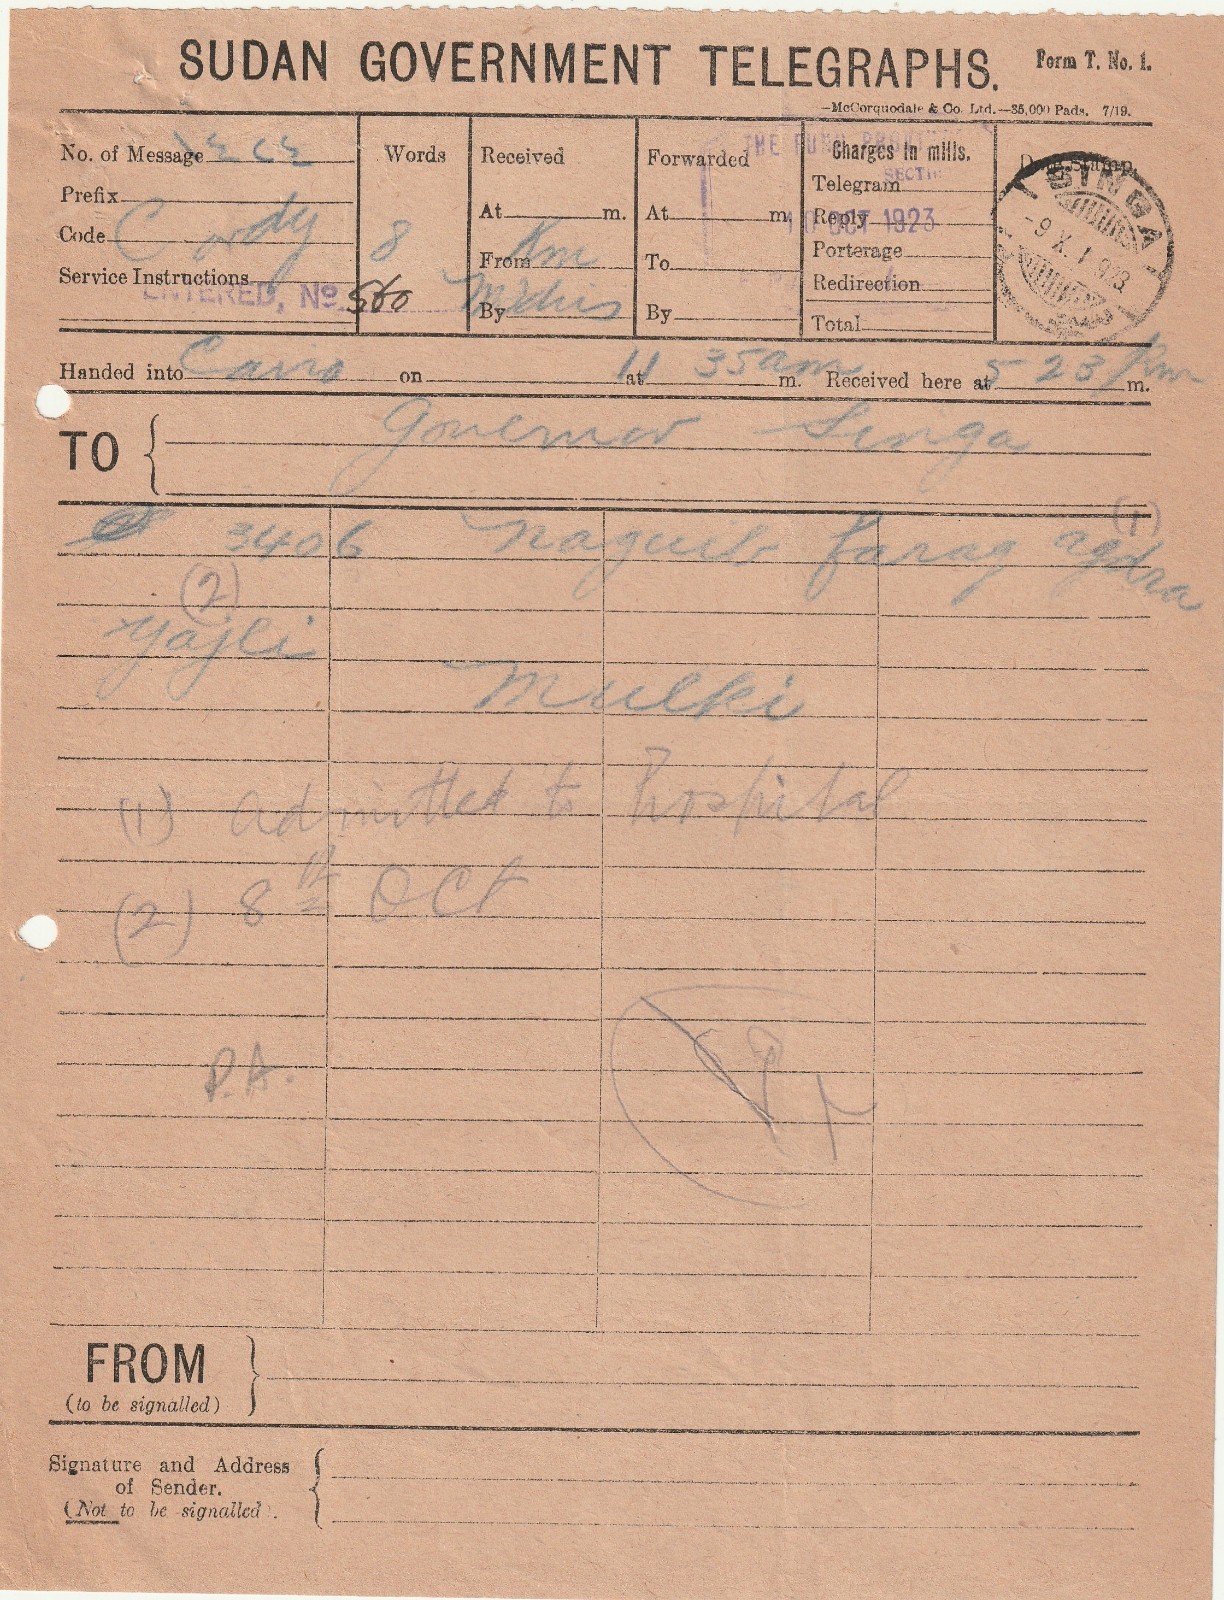 SUDAN GOVERNMENT TELEGRAPHS.
Form T. No. 1.
—McCorquodale & Co. Ltd.—35,000 Pads. 7/19.
No. of Message
Prefix
Code
Service Instructions
ENTERED, No 560
Words
8
Received
At m.
From Km
By
Forwarded
At m.
To
By
Charges in mills.
Telegram
Reply
Porterage
Redirection
Total
THE FUNG PROVINCE
SECTI
10 OCT 1923
Date Stamp.
SINGA
-9 X. 1 923
Handed into Cairo on at 11 35am m. Received here at 5 23 pm m.
TO Governor Singa
3406 Naguib farag (1)
(2)
yajli
Mulki
(1) admitted to hospital
(2) 8th Oct
P.A.
FROM
(to be signalled)
Signature and Address
of Sender.
(Not to be signalled).